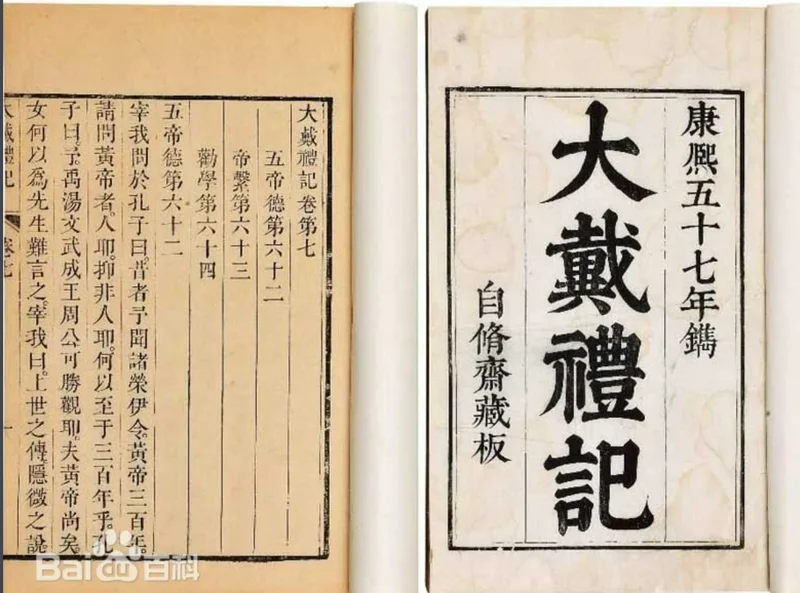 康熙五十七年鐫
大戴禮記
自脩齋藏板
大戴禮記卷第七
五帝德第六十二
帝繫第六十三
勸學第六十四
五帝德第六十二
宰我問於孔子曰。昔者予聞諸榮伊令。黃帝三百年。
請問黃帝者。人耶。抑非人耶。何以至于三百年乎。孔
子曰。予。禹湯文武成王周公可勝觀耶。夫黃帝尚矣。
女何以為先生難言之。宰我曰。上世之傳。隱微之說。
大戴禮記 卷七 一
Bai 百科